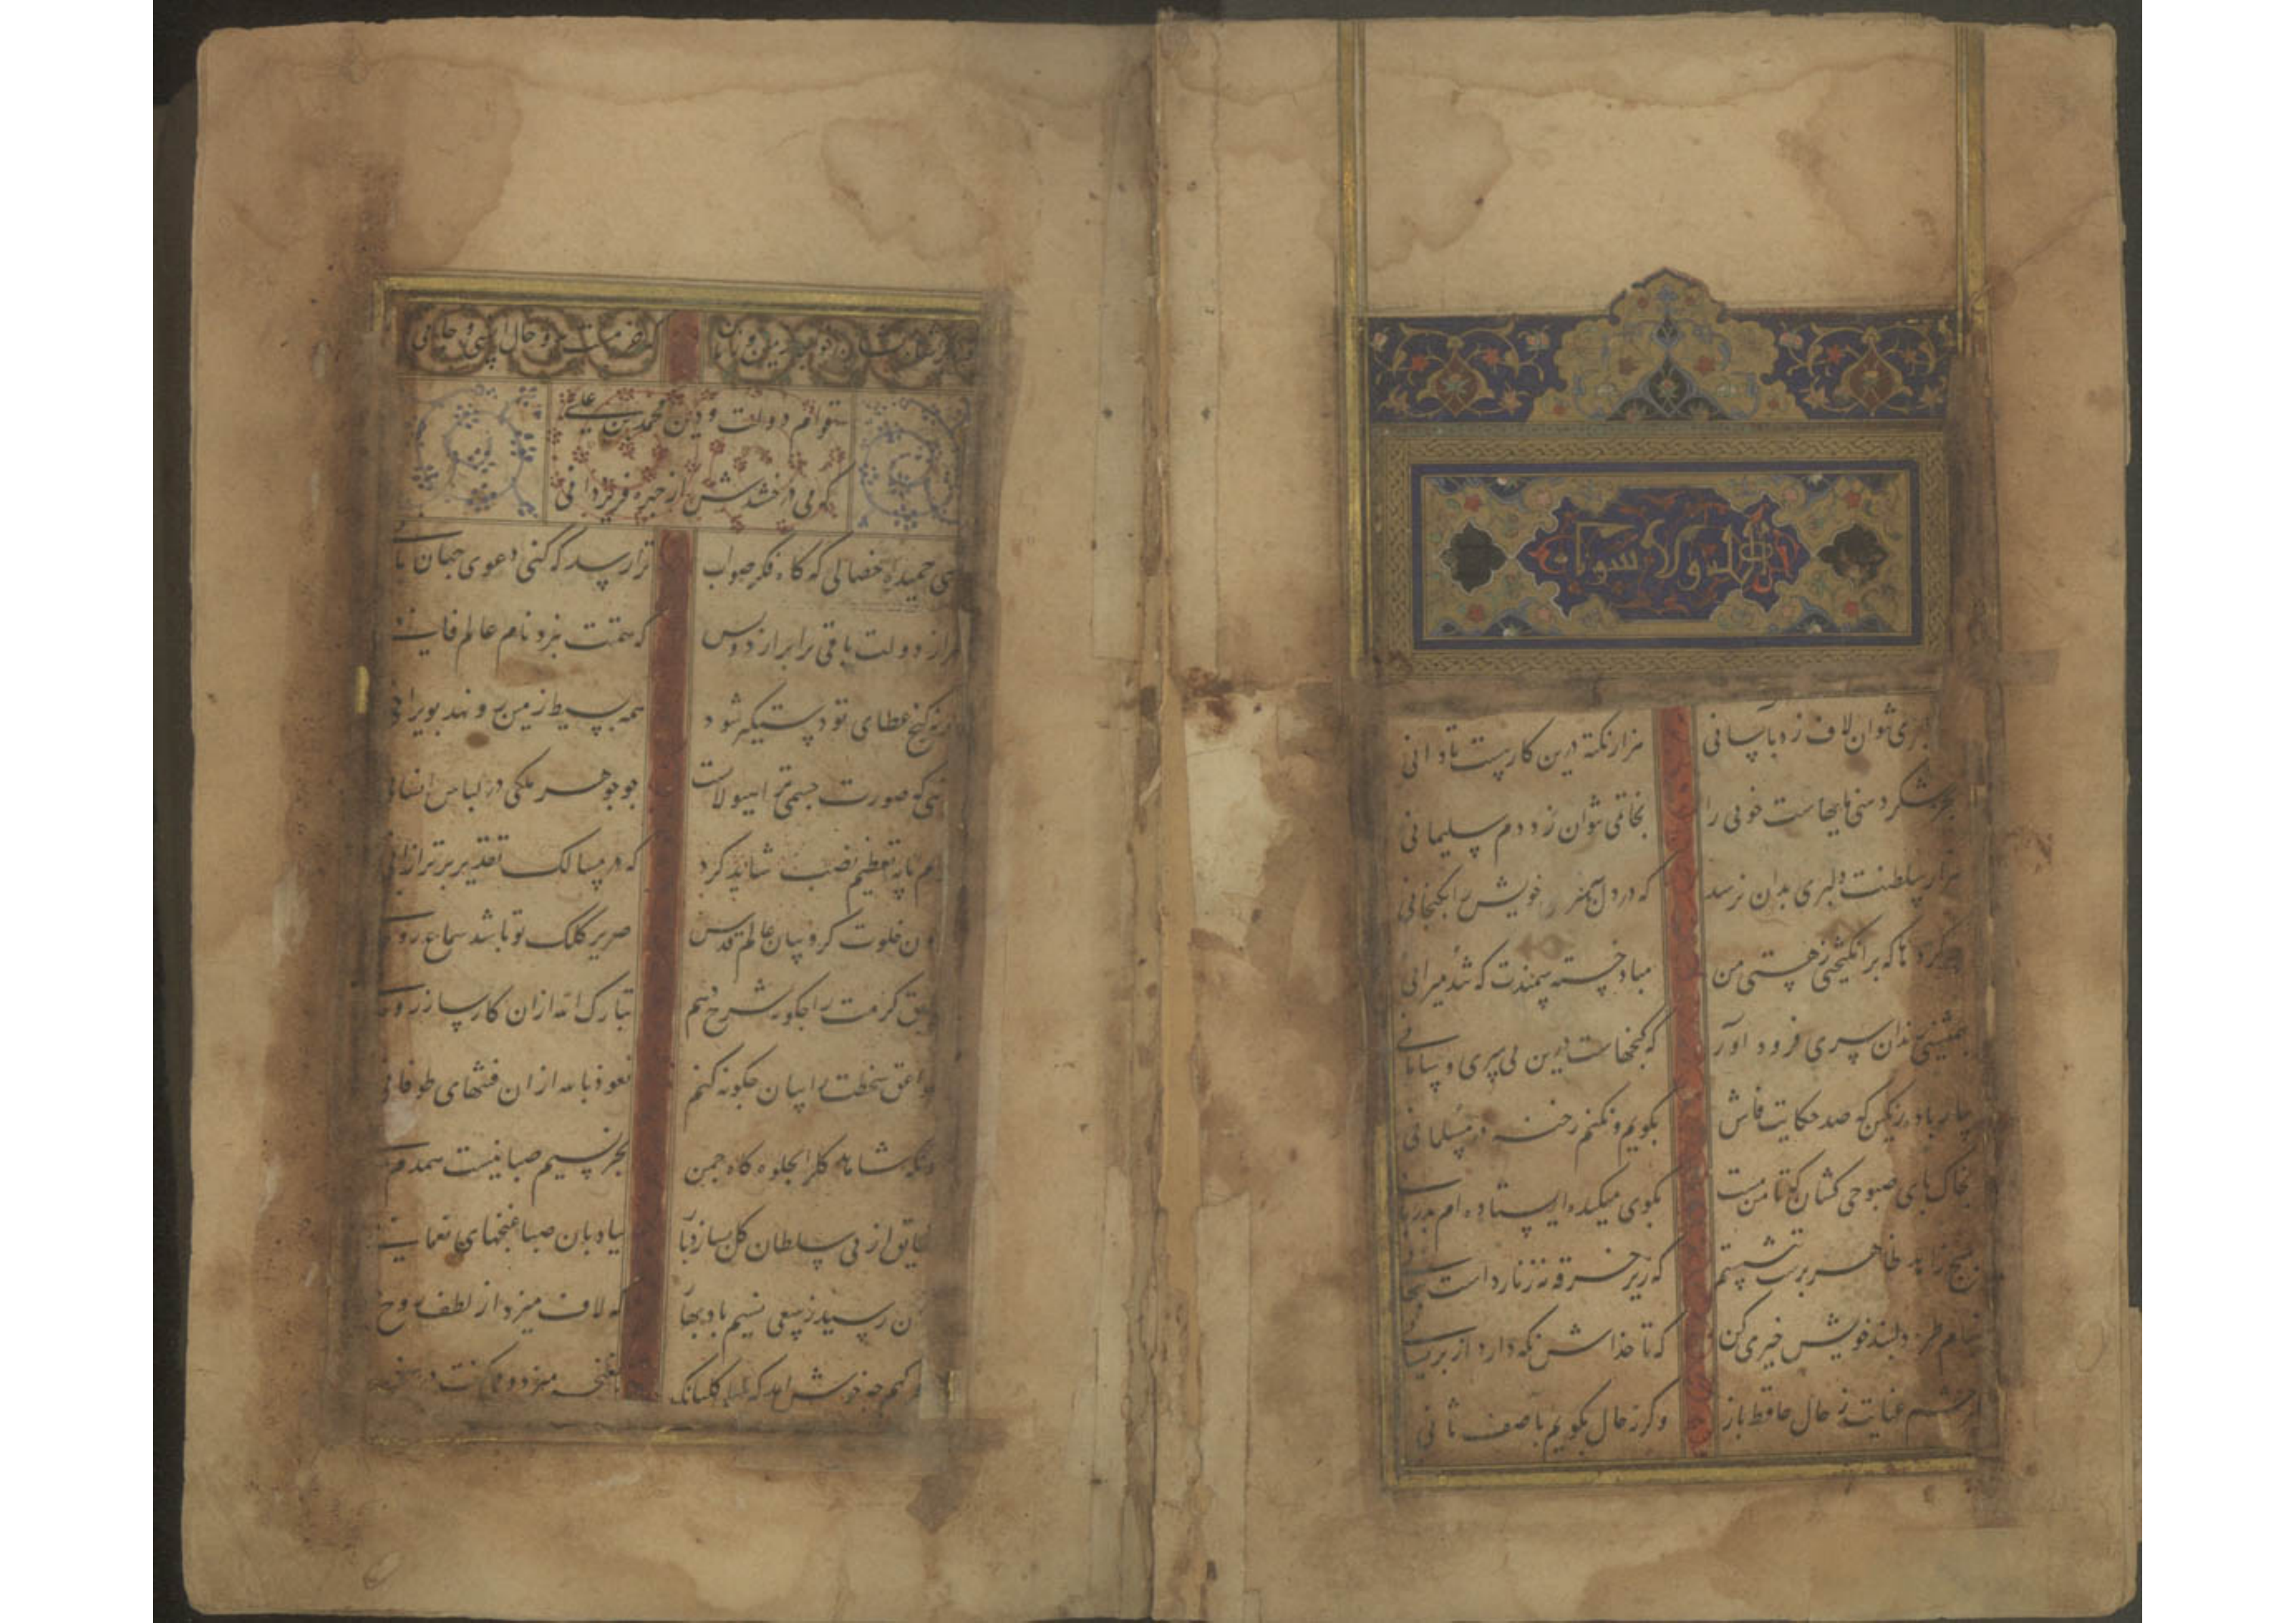 نتوان لاف زد بآسانی هزار نکته درین کار هست تا دانی
بجز شکردهنی مایهاست خوبی را بخاتمی نتوان زد دم سلیمانی
هزار سلطنت دلبری بدان نرسد که در دل بهنر خویش را بگنجانی
گردها که برانگیختی ز هستی من مباد خسته سمندت که تند میرانی
بهمنشینی رندان سری فرود آور که گنجهاست درین بی سری و سامانی
بیار باده رنگین که صد حکایت فاش بگویم و نکنم رخنه در مسلمانی
بخاک پای صبوحی کشان که تا من مست بکوی میکده ایستاده ام بدربانی
هیچ زاهد ظاهر پرست که زیر خرقه نه زنار داشت
بنام طره دلبند خویش خیری کن که تا خداش نگه دارد از پریشانی
چشم عنایت ز حال حافظ باز وگرنه حال بگویم بآصف ثانی
که خرمست بدو حال انسی و جانی
قوام دولت و دین محمد بن علی
که می درخشدش از چهره فر یزدانی
زهی حمیده خصالی که گاه فکر صواب ترا رسد که کنی دعوی جهان بانی
طراز دولت باقی برابر از دوس که همتت نبرد نام عالم فانی
اگر نه گنج عطای تو دستگیر شود همه بسیط زمین رو نهد بویرانی
تویی که صورت جسم ترا هیولا نیست چو جوهر ملکی در لباس انسانی
کدام پایه تعظیم نصب شاید کرد که در مسالک تقدیر برتر از آنی
درون خلوت کروبیان عالم قدس صریر کلک تو باشد سماع
کرمت را چگونه شرح دهم تبارک الله از آن کارساز
صواعق سخطت را بیان چگونه کنم نعوذ بالله از آن فتنهای طوفانی
کنونکه شاهد گل را بجلوه گاه چمن بجز نسیم صبا نیست همدم
شقایق از پی سلطان گل سازد باز بیادبان صبا نعمانی
رسید ز سعی نسیم باد بهار که لاف میزد از لطف روح
سحرگهم چه خوش آمد که بلبلی گلبانگ بغنچه میزد و میگفت در